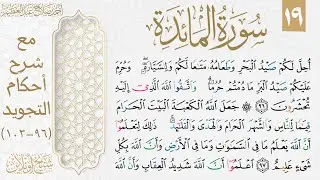 ١٩
سُورَةُ المَائِدَة
مع
شرح
أحكام
التجويد
(٩٦-١٠٣)
أُحِلَّ لَكُمْ صَيْدُ الْبَحْرِ وَطَعَامُهُ مَتَاعًا لَكُمْ وَلِلسَّيَّارَةِ وَحُرِّمَ
عَلَيْكُمْ صَيْدُ الْبَرِّ مَا دُمْتُمْ حُرُمًا وَاتَّقُوا اللَّهَ الَّذِي إِلَيْهِ
تُحْشَرُونَ ٩٦ جَعَلَ اللَّهُ الْكَعْبَةَ الْبَيْتَ الْحَرَامَ
قِيَامًا لِلنَّاسِ وَالشَّهْرَ الْحَرَامَ وَالْهَدْيَ وَالْقَلَائِدَ ذَلِكَ لِتَعْلَمُوا
أَنَّ اللَّهَ يَعْلَمُ مَا فِي السَّمَاوَاتِ وَمَا فِي الْأَرْضِ وَأَنَّ اللَّهَ بِكُلِّ
شَيْءٍ عَلِيمٌ ٩٧ اعْلَمُوا أَنَّ اللَّهَ شَدِيدُ الْعِقَابِ وَأَنَّ اللَّهَ